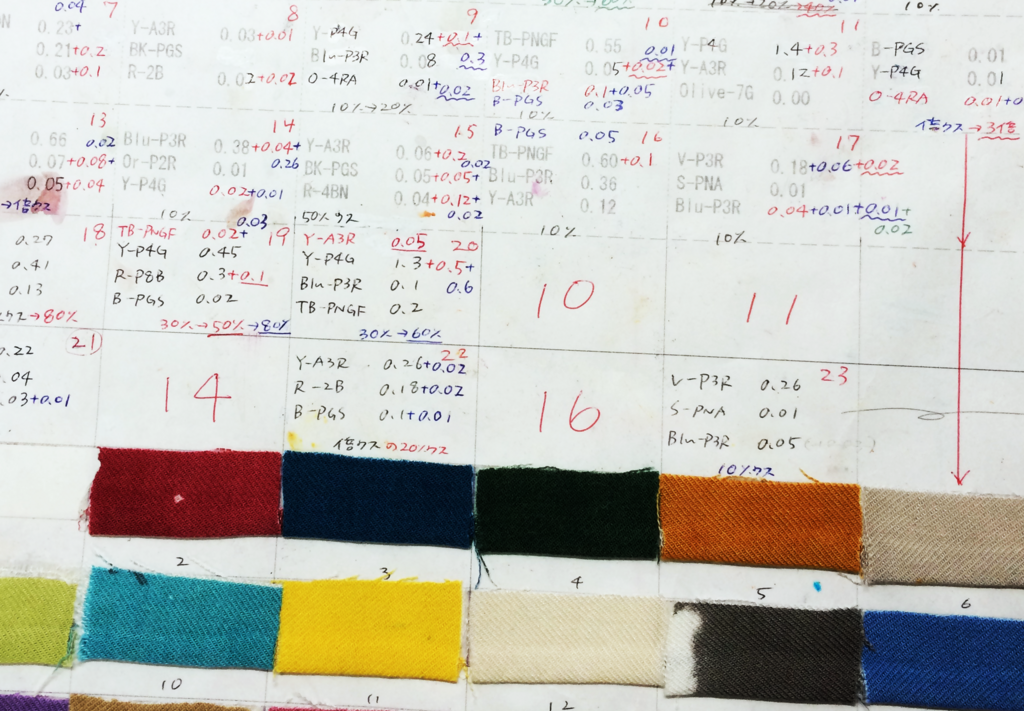 0.04 7 8 9 10 11 10%
0.23+ Y-A3R 0.03+0.01 Y-P4G 0.24+0.1+ TB-PNGF 0.55 0.01 Y-P4G 1.4+0.3 B-PGS 0.01
0.21+0.2 BK-PGS Blu-P3R 0.08 0.3 Y-P4G 0.05+0.02+ Y-A3R 0.12+0.1 Y-P4G 0.01
0.03+0.1 R-2B 0.02+0.02 O-4RA 0.01+0.02 Blu-P3R 0.1+0.05 Olive-7G 0.00 O-4RA 0.01+0
B-PGS 0.03
10%→20% 10% 10% 倍クス→3倍
13 14 15 B-PGS 0.05 16 17
0.66 0.02 Blu-P3R 0.38+0.04+ Y-A3R 0.06+0.2 TB-PNGF 0.60+0.1 V-P3R 0.18+0.06+0.02
0.07+0.08+ Or-P2R 0.01 0.26 BK-PGS 0.05+0.05+ 0.02 Blu-P3R 0.36 S-PNA 0.01
0.05+0.04 Y-P4G 0.02+0.01 R-4BN 0.04+0.12+ Y-A3R 0.12 Blu-P3R 0.04+0.01+0.01+
→倍クス 10% 0.03 50%クス 0.02 10% 10% 0.02
0.27 18 TB-PNGF 0.02+ 19 Y-A3R 0.05 20
0.41 Y-P4G 0.45 Y-P4G 1.3+0.5+
0.13 R-P8B 0.3+0.1 Blu-P3R 0.1 0.6 10 11
B-PGS 0.02 TB-PNGF 0.2
クス→80% 30%→50%→80% 30%→60%
0.22 21 14 Y-A3R 0.26+0.02 22 16 V-P3R 0.26 23
.04 R-2B 0.18+0.02 S-PNA 0.01
.03+0.01 B-PGS 0.1+0.01 Blu-P3R 0.05
倍クスの20%クス 10%クス
2 3 4 5 6
10 11 12